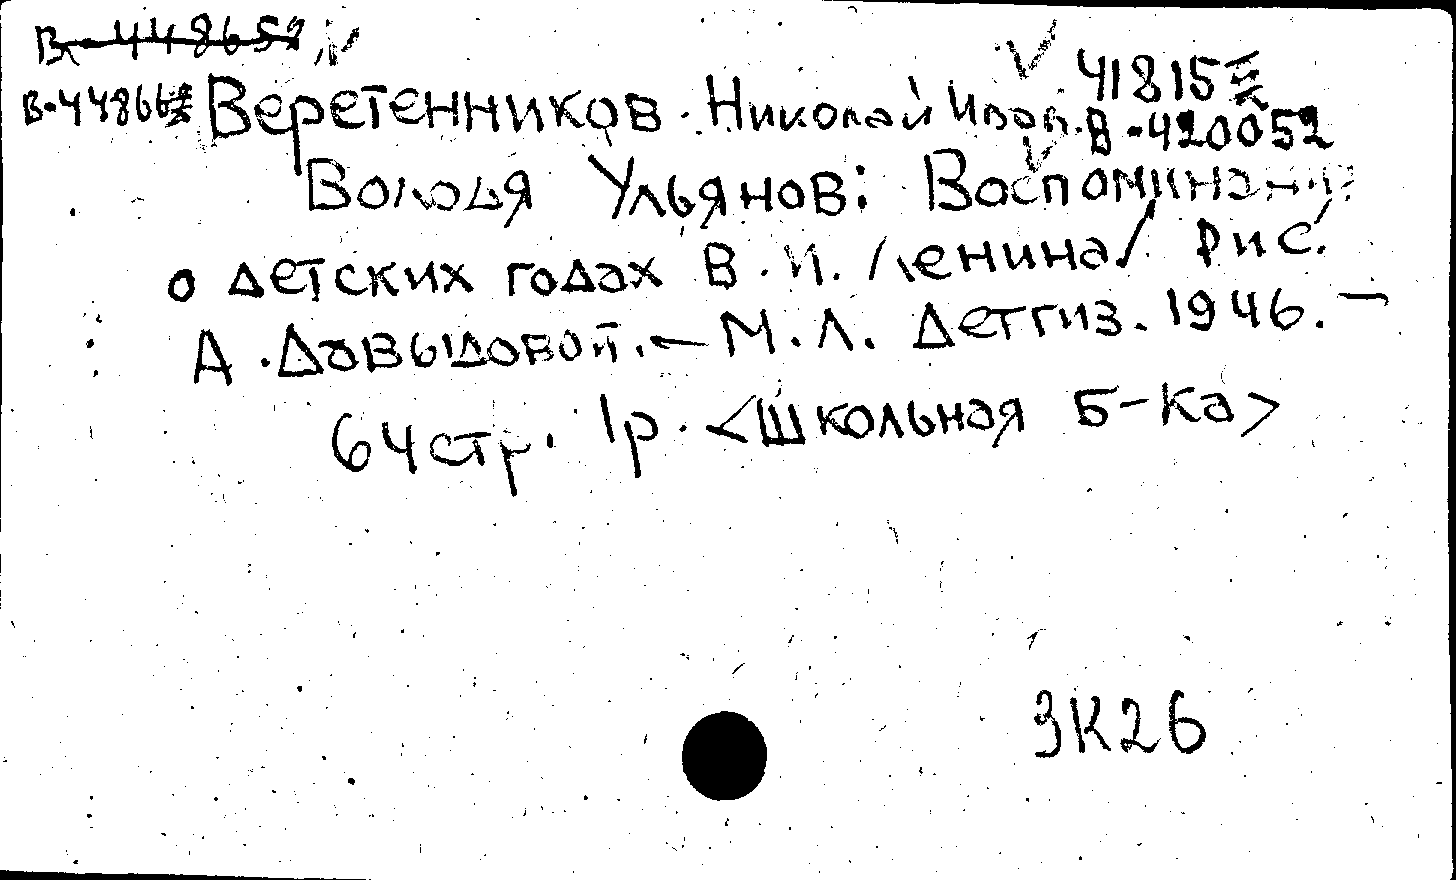 В-448652
41815
В-44866 Веретенников Николай Иван. В-420052
Володя Ульянов: Воспоминания
о детских годах В. И. Ленина/ Рис.
А. Давыдовой. — М. Л. Детгиз. 1946. —
64 стр. 1р. <Школьная Б-ка>
3К26